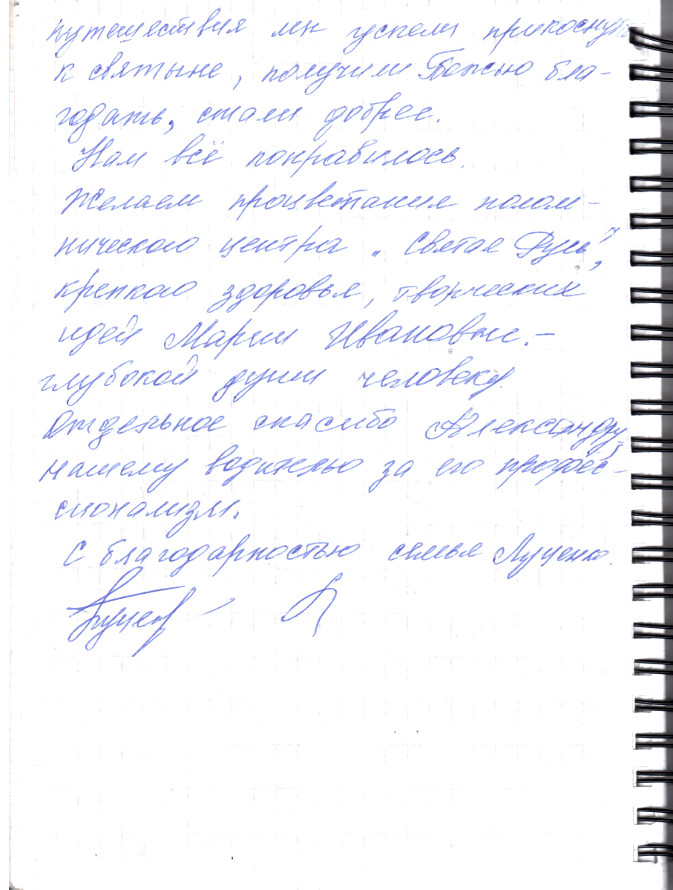 путешествия мы успели прикоснуть
к святыне, получили Божью бла-
годать, стали добрее.
Нам всё понравилось.
Желаем процветания палом-
нического центра „Святая Русь",
крепкого здоровья, творческих
идей Марии Ивановны. –
глубокой души человеку.
Отдельное спасибо Александру,
нашему водителю за его профес-
сионализм.
С благодарностью семья Луценко.